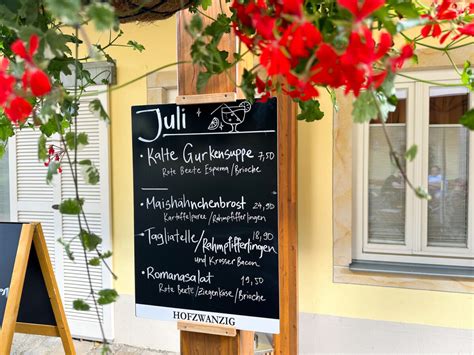 Juli
• Kalte Gurkensuppe 7,50
Rote Beete Espuma/Brioche
• Maishähnchenbrost 24,90
Kartoffelpüree/Rahmpfifferlingen
• Tagliatelle/Rahmpfifferlingen 18,90
und Krosser Bacon
• Romanasalat 19,50
Rote Beete/Ziegenkäse/Brioche
HOFZWANZIG